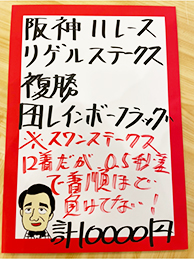 阪神11レース
リゲルステークス
複勝
⑪レインボーフラッグ
※スワンステークス
12着だが、0.5秒差
で着順ほど
負けてない!
計10000円